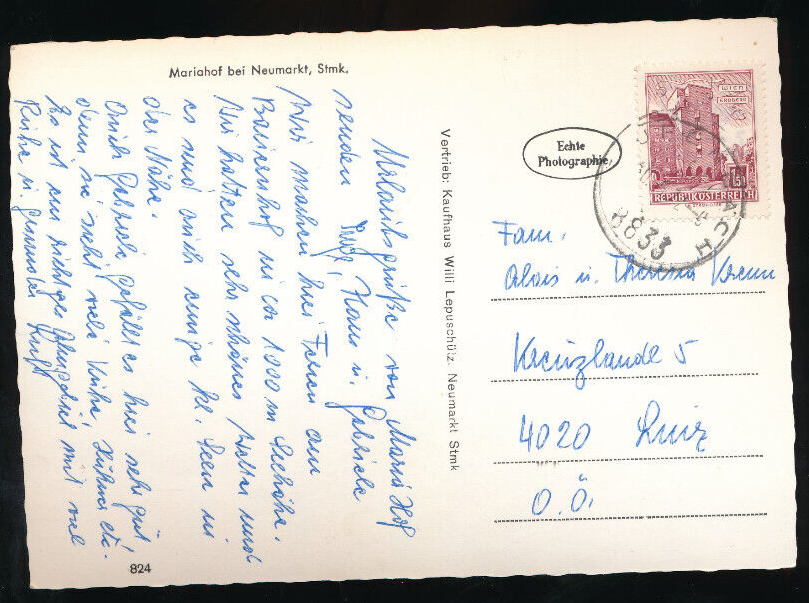 Mariahof bei Neumarkt, Stmk.
Urlaubsgrüße von Maria Hof
senden Hans u. Gabriele
Wir machen hier Ferien am
Bauernhof in ca 1000 m Seehöhe.
Wir hatten sehr schönes Wetter und
es sind auch einige kl. Seen in
der Nähe.
Auch Gabriele gefällt es hier sehr gut,
denn sie sieht viele Kühe, Hühner etc.
Es ist ein richtiges mit viel
Ruhe u. gesunder Luft
824
Vertrieb: Kaufhaus Willi Lepuschütz. Neumarkt Stmk
Echte
Photographie
WIEN
ERDBERG
1.50
REPUBLIK ÖSTERREICH
8833
Fam.
Alois u. Theresia Krenn
Kreuzlandl 5
4020 Linz
O.Ö.